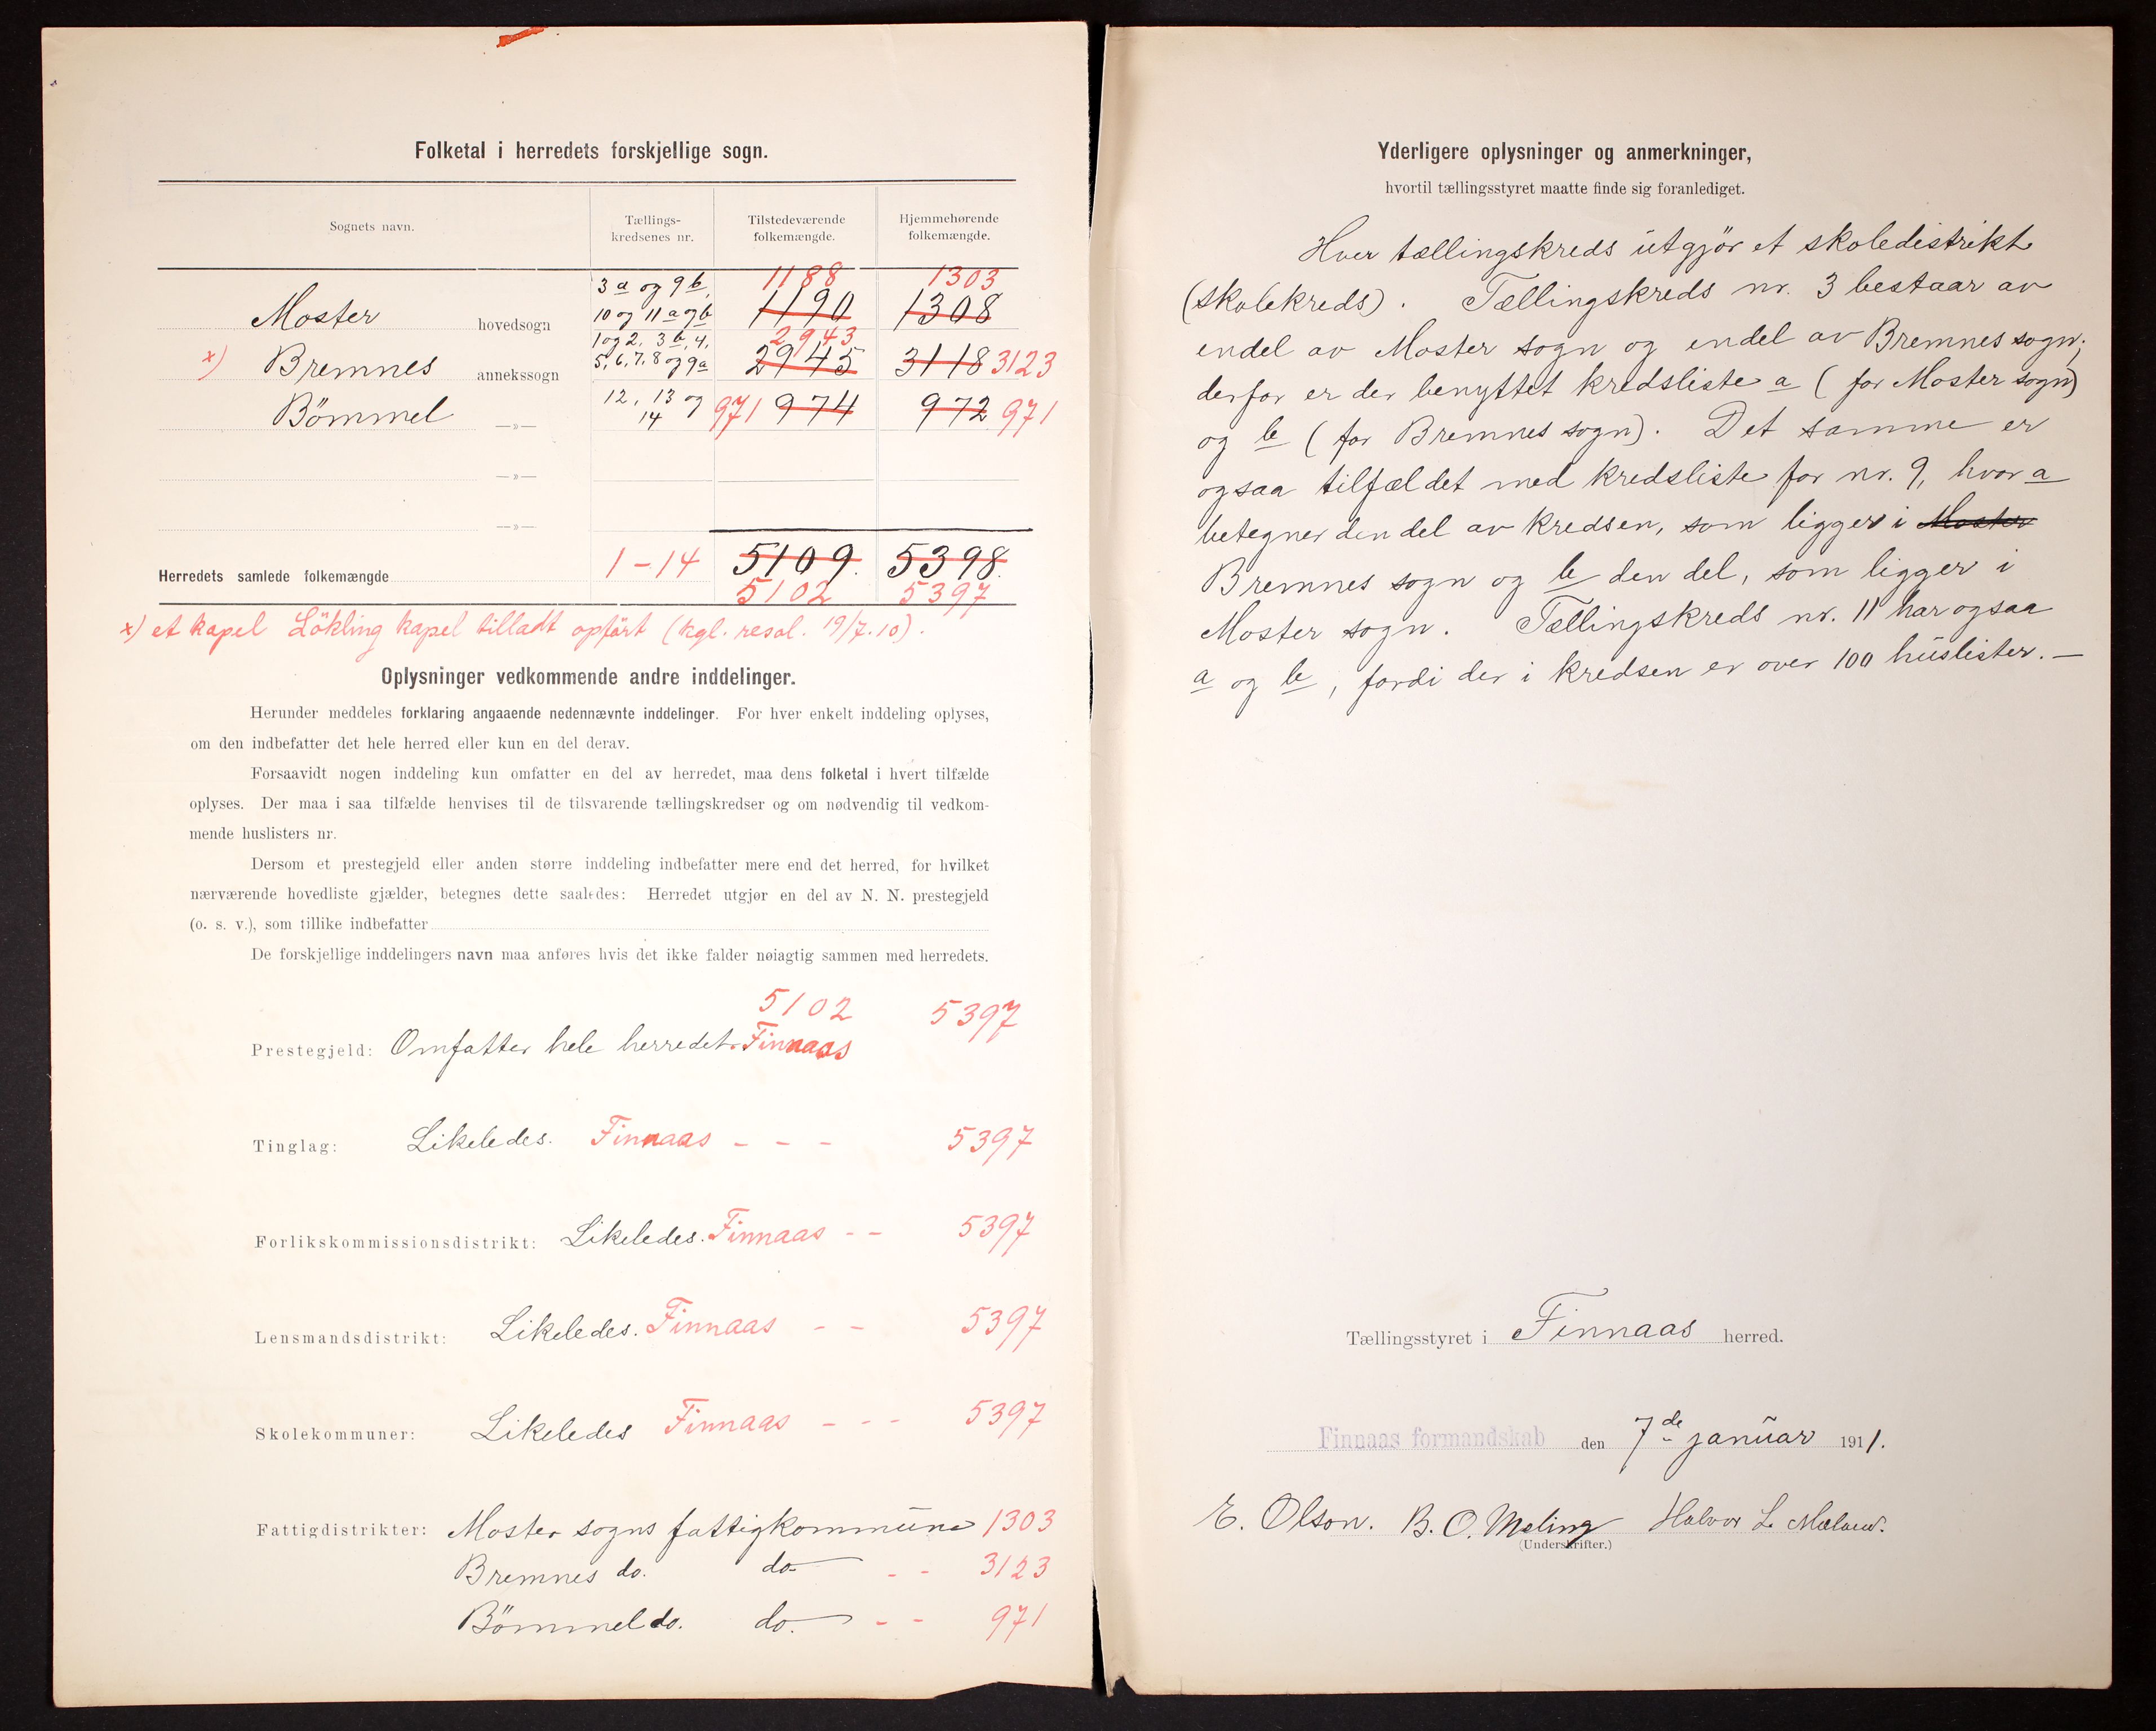 Folketal i herredets forskjellige sogn.
Sognets navn.
Tællings-
kredsenes nr.
Tilstedeværende
folkemængde.
Hjemmehørende
folkemængde.
3 a og 9 b, 1188 1303
Moster hovedsogn 10 og 11 a og b 1190 1308
1 og 2, 3 b, 4, 2943
x) Bremnes annekssogn 5, 6, 7, 8 og 9a 2945 3118 3123
Bömmel —»— 12, 13 og 14 971 974 972 971
—»—
—»—
Herredets samlede folkemængde 1-14 5109. 5398.
5102 5397
x) et kapel Lökling kapel tilladt opført (kgl. resol. 19/7.10).
Oplysninger vedkommende andre inddelinger.
Herunder meddeles forklaring angaaende nedennævnte inddelinger. For hver enkelt inddeling oplyses,
om den indbefatter det hele herred eller kun en del derav.
Forsaavidt nogen inddeling kun omfatter en del av herredet, maa dens folketal i hvert tilfælde
oplyses. Der maa i saa tilfælde henvises til de tilsvarende tællingskredser og om nødvendig til vedkom-
mende huslisters nr.
Dersom et prestegjeld eller anden større inddeling indbefatter mere end det herred, for hvilket
nærværende hovedliste gjælder, betegnes dette saaledes: Herredet utgjør en del av N. N. prestegjeld
(o. s. v.), som tillike indbefatter
De forskjellige inddelingers navn maa anføres hvis det ikke falder nøiagtig sammen med herredets.
5102 5397
Prestegjeld: Omfatter hele herredet. Finnaas
Tinglag: Likeledes. Finnaas - - - 5397
Forlikskommissionsdistrikt: Likeledes. Finnaas - - 5397
Lensmandsdistrikt: Likeledes. Finnaas - - 5397
Skolekommuner: Likeledes Finnaas - - - 5397
Fattigdistrikter: Moster sogns fattigkommune 1303
Bremnes do. do - - 3123
Bömmel do. do. - - 971
Yderligere oplysninger og anmerkninger,
hvortil tællingsstyret maatte finde sig foranlediget.
Hver tællingskreds utgjör et skoledistrikt
(skolekreds). Tællingskreds nr. 3 bestaar av
endel av Moster sogn og endel av Bremnes sogn;
derfor er der benyttet kredsliste a (for Moster sogn)
og b (for Bremnes sogn). Det samme er
ogsaa tilfældet med kredsliste for nr. 9, hvor a
betegner den del av kredsen, som ligger i Moster
Bremnes sogn og b den del, som ligger i
Moster sogn. Tællingskreds nr. 11 har ogsaa
a og b, fordi der i kredsen er over 100 huslister. —
Tællingsstyret i Finnaas herred.
Finnaas formandskab den 7de januar 1911.
E. Olson. B. O. Meling Halvor L.
(Underskrifter.)